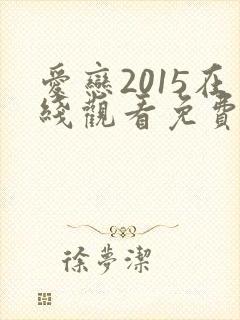 愛戀2015在
綫觀看免費
徐夢潔